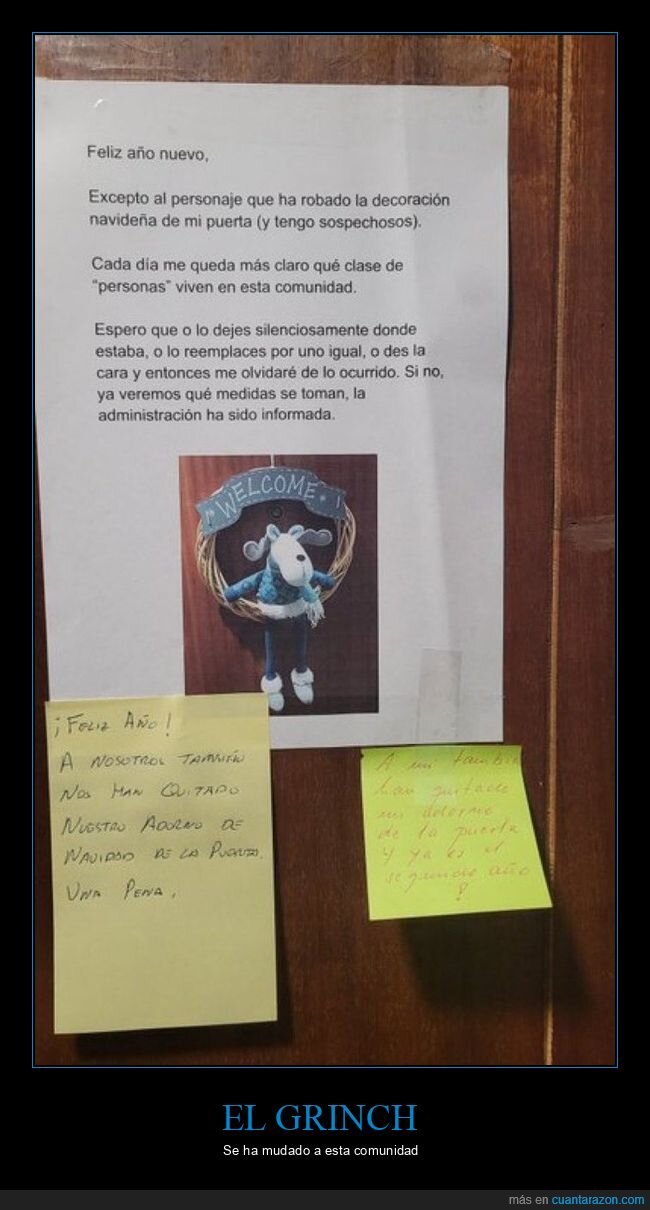 Feliz año nuevo,
Excepto al personaje que ha robado la decoración
navideña de mi puerta (y tengo sospechosos).
Cada día me queda más claro qué clase de
“personas” viven en esta comunidad.
Espero que o lo dejes silenciosamente donde
estaba, o lo reemplaces por uno igual, o des la
cara y entonces me olvidaré de lo ocurrido. Si no,
ya veremos qué medidas se toman, la
administración ha sido informada.
WELCOME
¡FELIZ AÑO!
A NOSOTROS TAMBIÉN
NOS HAN QUITADO
NUESTRO ADORNO DE
NAVIDAD DE LA PUERTA.
UNA PENA.
A mi también
han quitado
mi adorno
de la puerta
y ya es el
segundo año
!
EL GRINCH
Se ha mudado a esta comunidad
más en cuantarazon.com